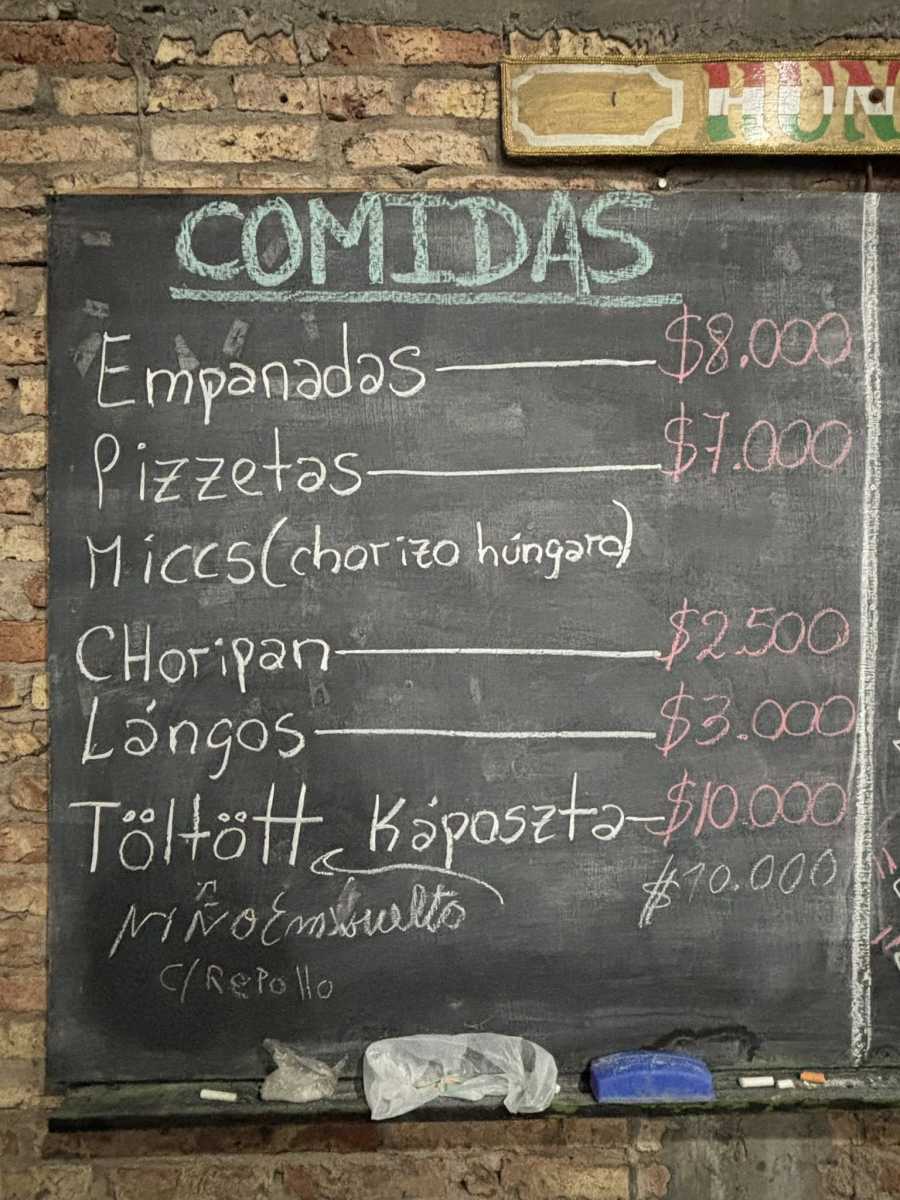 HUN
COMIDAS
Empanadas $8.000
Pizzetas $7.000
Miccs (chorizo húngaro)
CHoripan $2.500
Lángos $3.000
Töltött Káposzta $10.000
NIÑO Embuelto $10.000
C/Repollo